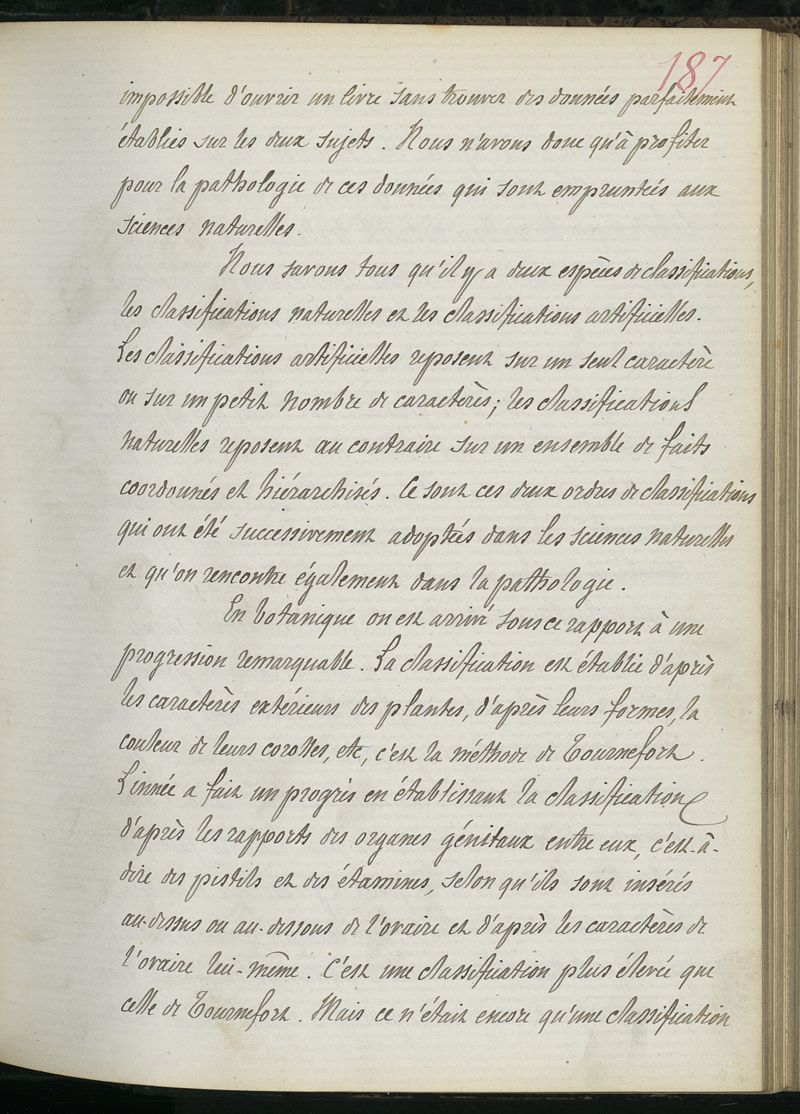 187
impossible d'ouvrir un livre sans trouver des données parfaitement
établies sur les deux sujets. Nous n'avons donc qu'à profiter
pour la pathologie de ces données qui sont empruntées aux
sciences naturelles.
Nous savons tous qu'il y a deux espèces de classifications,
les classifications naturelles et les classifications artificielles.
Les classifications artificielles reposent sur un seul caractère
ou sur un petit nombre de caractères; les classifications
naturelles reposent au contraire sur un ensemble de faits
coordonnés et hiérarchisés. Ce sont ces deux ordres de classifications
qui ont été successivement adoptées dans les sciences naturelles
et qu'on rencontre également dans la pathologie.
En botanique on est arrivé sous ce rapport à une
progression remarquable. La classification est établie d'après
les caractères extérieurs des plantes, d'après leurs formes, la
couleur de leurs corolles, etc, c'est la méthode de Tournefort.
Linnée a fait un progrès en établissant la classification
d'après les rapports des organes génitaux entre eux, c'est-à-
dire des pistils et des étamines, selon qu'ils sont insérés
au-dessus ou au-dessous de l'ovaire et d'après les caractères de
l'ovaire lui-même. C'est une classification plus élevée que
celle de Tournefort. Mais ce n'était encore qu'une classification